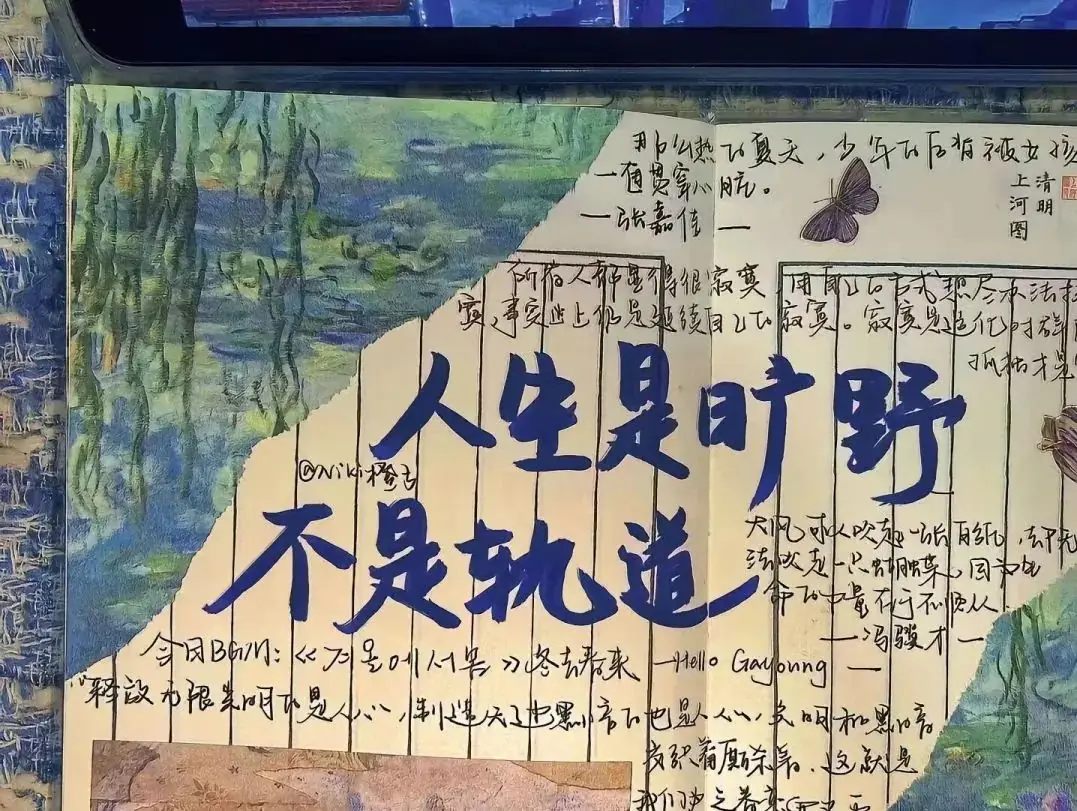 那么热的夏天，少年的后背被女孩
一通贯穿心脏。
—张嘉佳—
清明
上河图
所有人都显得很寂寞 用自己的方式想尽办法
寞，事实上仍是延续自己的寂寞。寂寞是造化对群
孤独才是
人生是旷野
@Niki橙子
不是轨道
大风可以吹起一张白纸，却无
法吹走一只蝴蝶，因为生
命的力量在于不顺从
—冯骥才—
今日BGM：《겨울에서 봄》冬去春来 —Hello Gayoung —
“释放无限光明的是人心，制造无边黑暗的也是人心，光明和黑暗
交织着厮杀着，这就是
我们为之眷恋